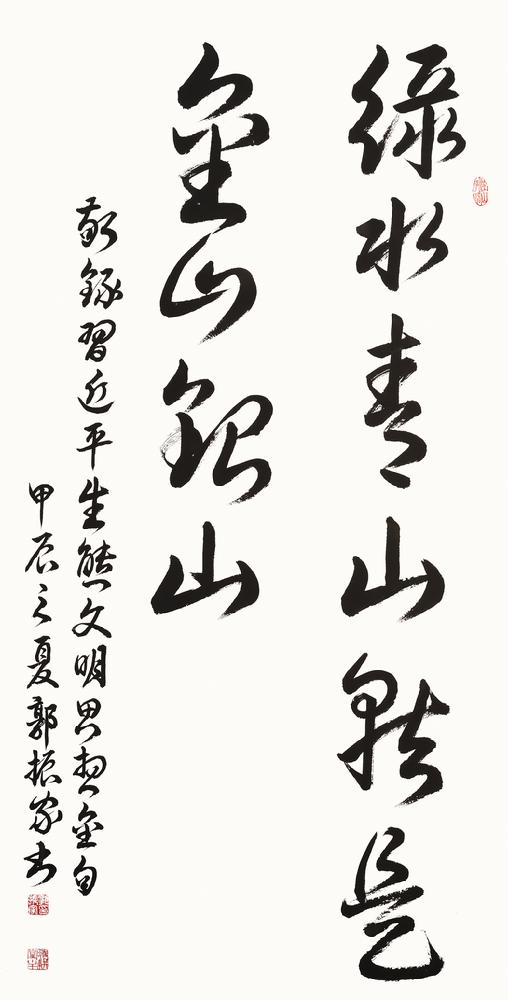 綠水青山就是
金山銀山
敬錄習近平生態文明思想金句
甲辰之夏郭振家书